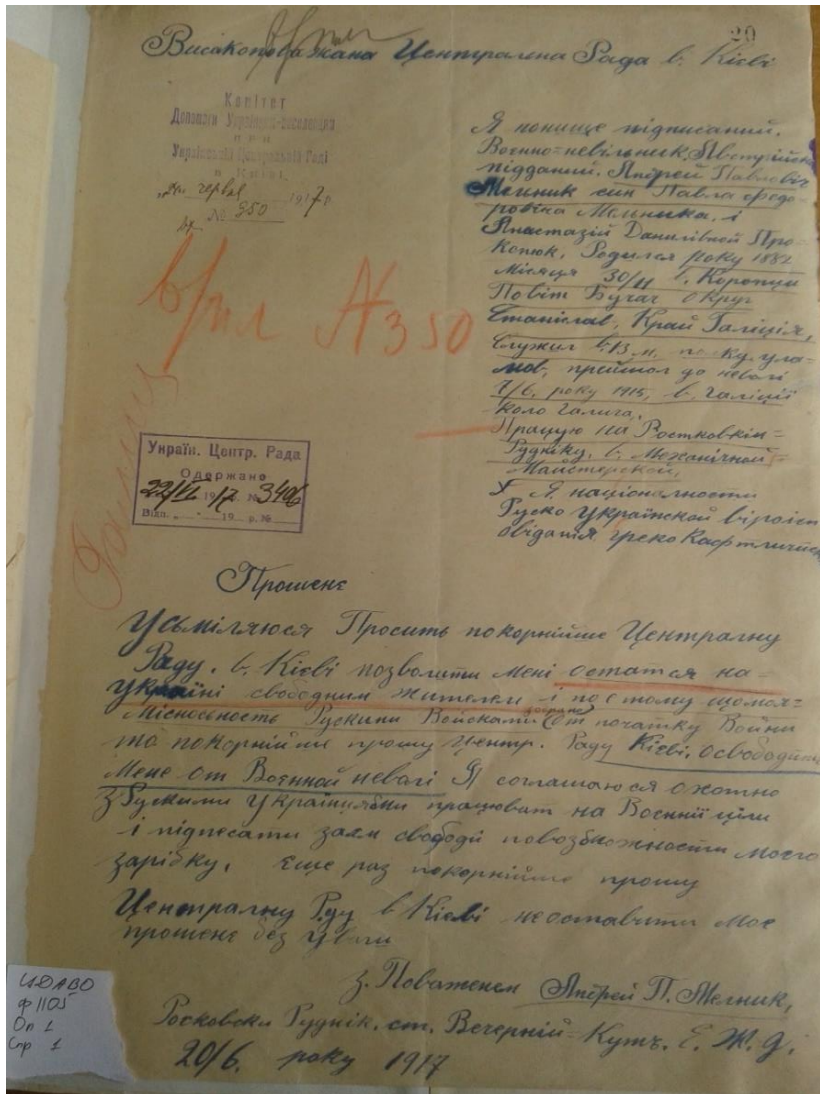 20
Високоповажана Централена Рада в. Кієві
Комітет
Допомоги Українцям-виселенцям
при
Українській Центральній Раді
в Київі.
червня 1917 р.
№ 350
Я понище підписаний.
Воєнно-невільник, Австрійск
підданий. Андрей Павлович
Мельник син Павла Федо-
ровича Мельника, і
Анастазій Данилівной Про-
копюк, Родился року 1882
Місяця 30/11 в. Коропци
Повіт Бучач округ
Станіслав, Край Галіція,
Служил в. 13 м. полку ула-
нов, прейшол до неволі
7/6. року 1915, в. Галіції
коло Галича.
Працую на Ростковскім=
Рудніку, в. Механічной=
Майстерской,
Я національности
Руско Украінской віроісп
овіданія греко Кафтличиск
в/пл N350
Україн. Центр. Рада
Одержано
22/VI 1917 № 3406
Відп. 19 р. №
Прошенє
Усьміляюся Просить покорнійше Централну
Раду. в. Кієві позволити мені остатся на-
Україні свободним жителем і по є тому що моя=
Місносвость Рускими Войсками от початку Войни
то покорнійше прошу Центр. Раду Кієві, освободити
Мене от Воєнной неволі Я соглашаюся охотно
з Рускими Українцями працюват на Воєнії ціли
і підписати заям свободи по возможности моєго
зарібку. Еще раз покорнійше прошу
Централну Рду в Кієві не оставити моє
прошенє без уваги
з. Поваженєм Андрей П. Мелник,
Росковски Руднік. ст. Вечерній=Кутъ. Е. Ж. Д.
20/6. року 1917
ЦДАВО
ф 1105
Оп 1
Спр 1